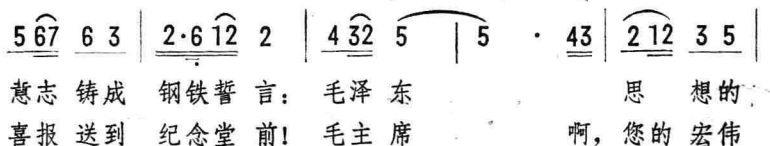 5 67 6 3 | 2·6 12 2 | 4 32 5 | 5 · 43 | 2 12 3 5 |
意志 铸成 钢铁誓 言: 毛泽 东 思 想的
喜报 送到 纪念堂 前! 毛主 席 啊, 您的 宏伟